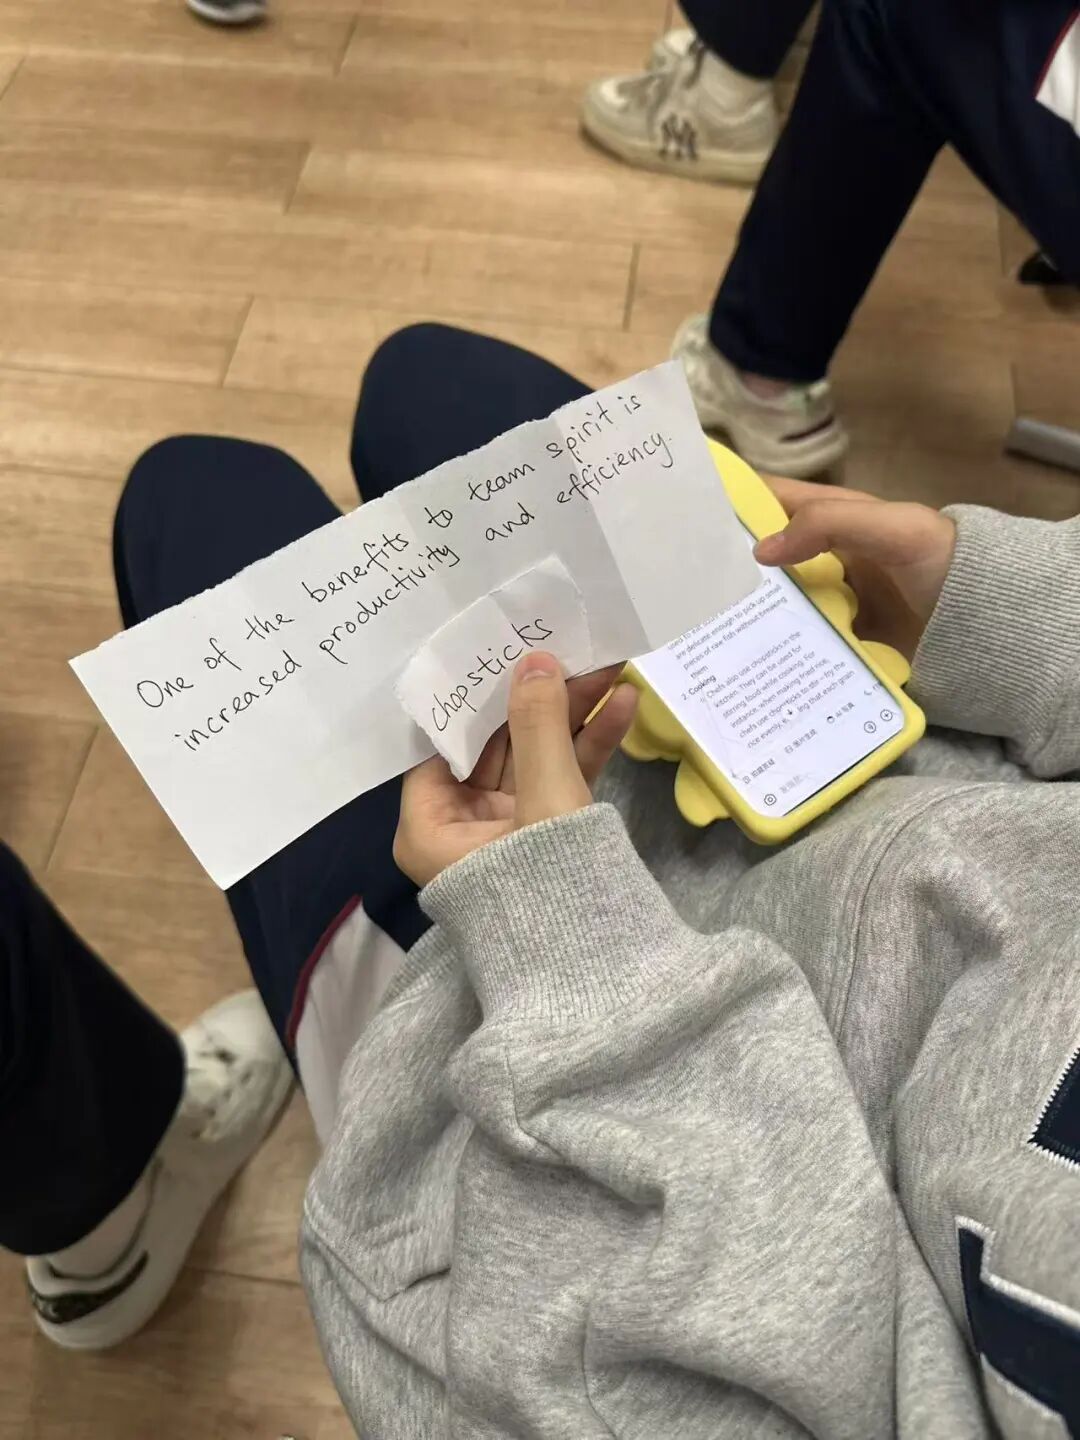 One of the benefits to team spirit is
increased productivity and efficiency.
chopsticks
are delicate enough to pick up small
pieces of raw fish without breaking
them
2. Cooking
Chefs also use chopsticks in the
kitchen. They can be used for
stirring food while cooking. For
instance, when making fried rice,
chefs use chopsticks to stir - fry the
rice evenly, ing that each grain
NY